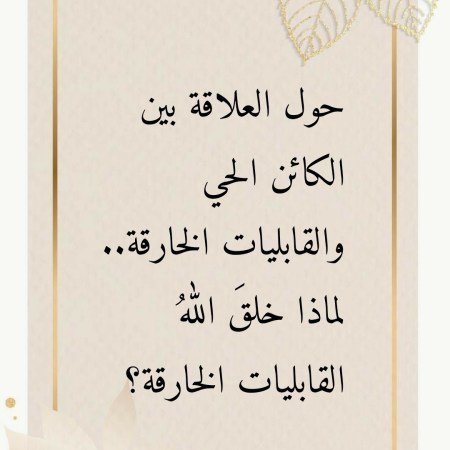 حول العلاقة بين
الكائن الحي
والقابليات الخارقة..
لماذا خلقَ اللهُ
القابليات الخارقة؟